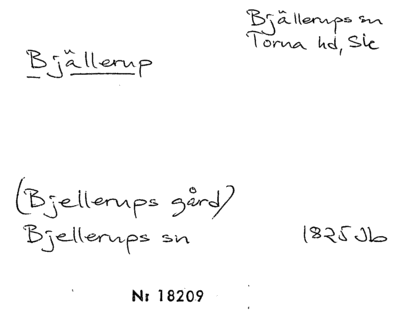 Bjällerups sn
Torna hd, Sk
Bjällerup
(Bjellerups gård)
Bjellerups sn 1825 Jb
Nr 18209